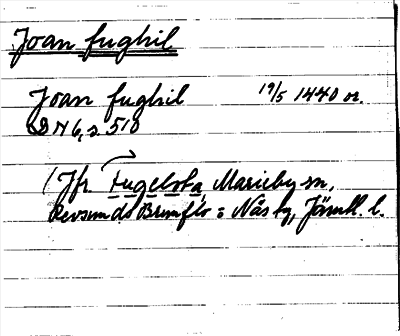 Joan fughil
Joan fughil 19/5 1440 or.
DN 6, s. 510
(Jfr Fugelsta, Marieby sn,
Revsunds Brunflo o Näs tg, Jämtl. l.